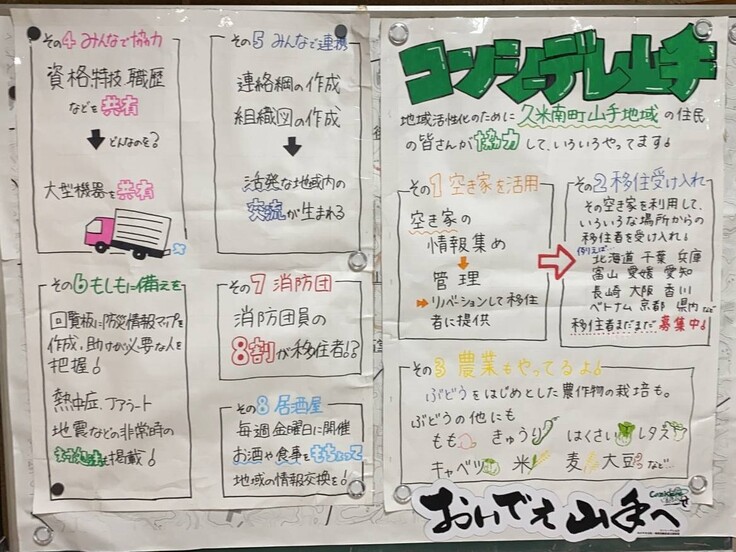 コンシェデレ山手
地域活性化のために久米南町山手地域の住民
の皆さんが協力して、いろいろやってます!
その1 空き家を活用
空き家の
情報集め
管理
リノベーションして移住
者に提供
その2 移住受け入れ
その空き家を利用して、
いろいろな場所からの
移住者を受け入れ!
例えば…
北海道 千葉 兵庫
富山 愛媛 愛知
長崎 大阪 香川
ベトナム 京都 県内など
移住者まだまだ募集中!
その3 農業もやってるよ!
ぶどうをはじめとした農作物の栽培も。
ぶどうの他にも
もも きゅうり はくさい レタス
キャベツ 米 麦 大豆 など…
その4 みんなで協力
資格、特技、職歴
などを共有
どんなのを?
大型機器を共有
その5 みんなで連携
連絡網の作成
組織図の作成
活発な地域内の
交流が生まれる
その6 もしもに備えを
回覧板に防災情報マップを
作成、助けが必要な人を
把握!
熱中症、Jアラート
地震などの非常時の
を掲載!
その7 消防団
消防団員の
8割が移住者!?
その8 居酒屋
毎週金曜日に開催
お酒や食事をもちよって
地域の情報交換を!
おいでえ山手へ